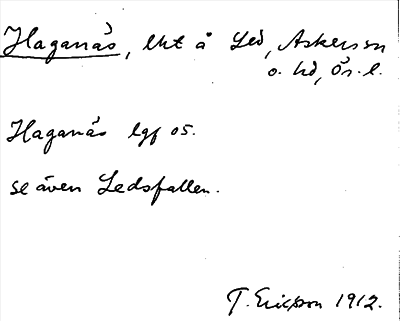 Haganäs, lht å Led, Askerssn
o. hd, Ör. l.
Haganäs lgf 05.
se även Ledsfallen.
T. Ericsson 1912.